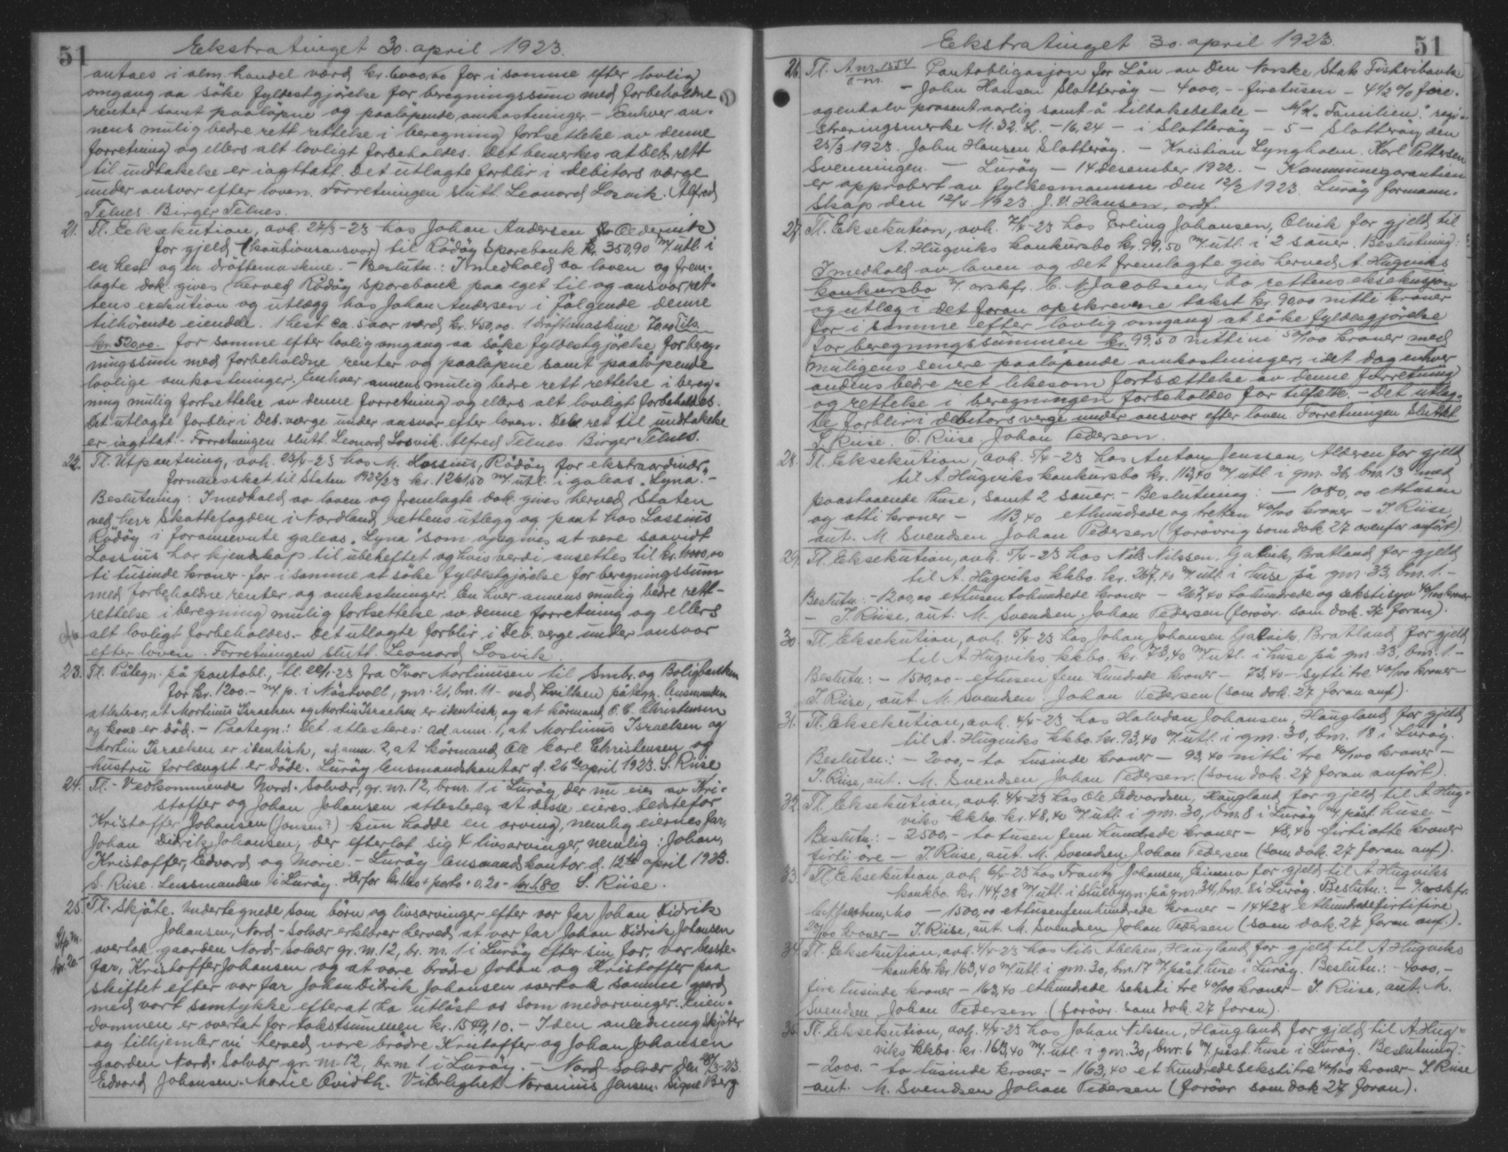 51
Ekstratinget 30. april 1923.
antaes i alm. handel værd kr. 6000,00 for i samme efter lovlig
omgang aa søke fyldestgjørelse for beregningssum med forbeholdne
renter samt paaløpne og paaløpende omkostninger - Enhver an-
nens mulig bedre rett rettelse i beregning fortsettelse av denne
forretning og ellers alt lovligt forbeholdes. Det bemerkes at deb. rett
til undtakelse er iagttatt. Det utlagte forblir i debitors værge
under ansvar efter loven. Forretningen slutt. Leonard Losvik. Alfred
Telnes. Birger Telnes.
21. Tl. Eksekution, avh. hos Johan Andersen
for gjeld (kautionsansvar) til Rødøy Sparebank kr. 350,90 m/utl. i
en hest og en drøftemaskine. - Beslutn.: I medhold av loven og frem-
lagte dok. gives herved Rødøy sparebank paa eget til og ansvar ret-
tens exekution og utlegg hos Johan Andersen i følgende denne
tilhørende eiendele. 1 hest ca. 5 aar værd kr. 450,00. 1 drøftemaskine Tils.
kr. 520,00. for samme efter lovlig omgang aa søke fyldestgjørelse for bereg-
ningssum med forbeholdne renter og paaløpne samt paaløpende
lovlige omkostninger. Enhver annens mulig bedre rett rettelse i bereg-
ning mulig fortsettelse av denne forretning og ellers alt lovligt forbeholdes.
Det utlagte forblir i Deb. værge under ansvar efter loven. Deb. ret til undtakelse
er iagttat. Forretningen slutt Leonard Losvik. Alfred Telnes. Birger Telnes.
22. Tl. Utpantning, avh. 23/4-23 hos M. Lossius, Rødøy for ekstraordinær
formuesskat til Staten 1922/23 kr. 1261,50 m/utl. i galeas "Lyna". -
Beslutning: I medhold av loven og fremlagte dok. gives herved Staten
ved herr Skattefogden i Nordland rettens utlegg og pant hos Lossius
Rødøy i forannevnte galeas "Lyna" som opgives at være saavidt
Lossius har kjendskap til ubeheftet og hvis verdi ansettes til kr. 10000,00
ti tusinde kroner for i samme at søke fyldestgjørelse for beregningssum
med forbeholdne renter og omkostninger. En hver annens mulig bedre rett-
rettelse i beregning mulig fortsettelse av denne forretning og ellers
alt lovligt forbeholdes. Det utlagte forblir i Deb. verge under ansvar
efter loven. Forretningen slutt. Leonard Losvik.
23. Tl. Påtegn. på pantobl., tl. fra Ivar Mortinussen til Småbr. og Boligbanken
for kr. 1200.- m/p. i Nåstvoll, gnr. 21, bnr. 11 - ved hvilken påtegn. lensmanden
attesterer, at Mortinus Israelsen og Mortin Israelsen er identisk, og at kårmand O. C. Christensen
og kone er død. - Paategn.: Det attesteres: ad anm. 1, at Mortinus Israelsen og
Mortin Israelsen er identisk, ad anm. 2, at kårmand Ole Carl Christensen og
hustru forlængst er døde. Lurøy lensmandskontor d. 26 april 1923. S. Riise
24. Tl. - Vedkommende Nord-Solvær, gr. nr. 12, brnr. 1 i Lurøy, der nu eies av Kri-
stoffer og Johan Johansen attesteres at disse eieres bedstefar
Kristoffer Johansen (Jonsen?) kun hadde en arving, nemlig eiernes far,
Johan Didrik Johansen, der efterlot sig 4 livsarvinger, nemlig: Johan,
Kristoffer, Edvard og Marie. - Lurøy lensmandskontor d. 12te april 1923.
S. Riise. Lensmanden i Lurøy. Herfor kr. 1,60 + porto 0,20 = kr. 1,80 S. Riise.
25. Tl. Skjøte. Undertegnede som børn og livsarvinger efter vor far Johan Didrik
Johansen, Nord-Solvær erklærer herved at vor far Johan Didrik Johansen
overtok gaarden Nord-Solvær gr. nr. 12, br. nr. 1 i Lurøy efter sin far, vor beste-
far, Kristoffer Johansen, og at vore brødre Johan og Kristoffer paa
skiftet efter vor far Johan Didrik Johansen overtok samme gaard
med vort samtykke efterat ha utløst os som medarvinger. Eien-
dommen er overtat for takstsummen kr. - I den anledning skjøter
og tilhjemler vi herved vore brødre Kristoffer og Johan Johansen
gaarden Nord-Solvær gr. nr. 12, br. nr. 1 i Lurøy. - Nord-Solvær den
Edvard Johansen. Marie Qvidth. Vitterlighet: Noranius Jensen. Signe Berg
51
Ekstratinget 30. april 1923.
26. Tl. Anr. Pantobligasjon for Lån av Den Norske Stats Fiskeribank
- John Hansen Slotterøy - 4000,- firetusen - 4½ % fire-
ogenhalv prosent aarlig samt å tilbakebetale - M/K "Familien" regi-
streringsmerke N. 32. L. - 16,24 - i Slotterøy - 5 - Slotterøy den
23/3 1923. John Hansen Slotterøy. - Kristian Lyngholm. Karl Pettersen
Svenningen Lurøy - 14 desember 1922. - Kommunegarantien
er approbert av fylkesmannen den 12/2 1923. Lurøy formann-
skap den 12/4 1923. J. V. Hansen, ordf.
27. Tl. Eksekution, avh. hos Erling Johansen, Olvik for gjeld til
A. Hugviks konkursbo kr. 99,50 m/utl. i 2 sauer. Beslutning:
I medhold av loven og det fremlagte gies herved A. Hugviks
konkursbo v/ o.r.skf. C. M. Jacobsen, Bo rettens eksekusjon
og utlæg i det foran opskrevne takst kr. 90,00 nitti kroner
for i samme efter lovlig omgang at søke fyldesgjørelse
for beregningssummen kr. 99,50 nittini 50/100 kroner med
muligens senere paaløpende omkostninger, idet dog enhver
andens bedre ret likesom fortsættelse av denne forretning
og rettelse i beregningen forbeholdes for tilfælle. - Det utlag-
te forblir i debitors verge under ansvar efter loven. Forretningen sluttet
S. Riise. O. Riise. Johan Pedersen.
28. Tl. Eksekution, avh. hos Anton Jenssen, Alderen for gjeld
til A. Hugviks konkursbo kr. 113,40 m/utl. i gnr. 36, bnr. 13 med
paastaaende huse, samt 2 sauer. - Beslutning: - 1080,00 ettusen
og otti kroner - 113,40 ethundrede og tretten 40/100 kroner - S. Riise,
aut. M. Svendsen Johan Pedersen (forøvrig som dok. 27 ovenfor anført)
29. Tl. Eksekution, avh. hos Nils Nilssen, Gatvik, Bratland for gjeld
til A. Hugviks kkbo. kr. 267,40 m/utl. i huse på gnr. 33, bnr. 1. -
Beslutn. - 1200,00 ettusen tohundrede kroner - 267,40 tohundrede og sekstisyv 40/100 kroner
- S. Riise, aut. M. Svendsen, Johan Pedersen (forøvr. som dok. 27 foran).
30. Tl. Eksekution, avh. hos Johan Johansen Gatvik, Bratland for gjeld
til A. Hugviks kkbo. kr. 73,40 m/utl. i huse på gnr. 33, bnr. 1 -
Beslutn.: - 1500,00 - ettusen fem hundrede kroner - 73,40 - sytti tre 40/100 kroner -
S. Riise, aut. M. Svendsen, Johan Pedersen (som dok. 27 foran anf.)
31. Tl. Eksekution, avh. 4/4-23 hos Halvdan Johansen, Haugland, for gjeld
til A. Hugviks kkbo kr. 93,40 m/utl. i gnr. 30, bnr. 18 i Lurøy.
Beslutn.: - 2000,- to tusinde kroner - 93,40 nitti tre 40/100 kroner -
S. Riise, aut. M. Svendsen Johan Pedersen. (som dok. 27 foran anført).
32. Tl. Eksekution, avh. 4/4-23 hos Ole Edvardsen, Haugland, for gjeld til A. Hug-
viks kkbo. kr. 48,40 m/utl. i gnr. 30, bnr. 8 i Lurøy m/ påst. huse, -
Beslutn.: - 2500,- to tusen fem hundrede kroner - 48,40 firti otte kroner
firti øre - S. Riise, aut. M. Svendsen, Johan Pedersen (som dok. 27 foran anf.).
33. Tl. Eksekution, avh. hos Frantz Johansen, for gjeld til A. Hugviks
konkbo kr. 144,28 m/utl. i stuebygn. på gnr. 34, bnr. 8 i Lurøy. Beslutn.: - o.r.skfr.
- 1500,00 ettusenfemhundrede kroner - 144,28 ethundredefirtifire
28/100 kroner - S. Riise, aut. M. Svendsen Johan Pedersen (som dok. 27 foran anf.).
34. Tl. Eksekution, avh. 4/4-23 hos Nils Thelsen, Haugland, for gjeld til A. Hugviks
konkbo kr. 163,40 m/utl. i gnr. 30, bnr. 17 m/ påst. huse i Lurøy. Beslutn.: - 4000,-
fire tusinde kroner - 163,40 ethundrede seksti tre 40/100 kroner - S. Riise, aut. M.
Svendsen, Johan Pedersen (forøvr. som dok. 27 foran).
35. Tl. Eksekution, avh. 4/4-23 hos Johan Nilssen, Haugland, for gjeld til A. Hug-
viks kkbo. kr. 163,40 m/ utl. i gnr. 30, bnr. 6 m/ påst. huse i Lurøy. Beslutning:
- 2000,- to tusinde kroner - 163,40 et hundrede sekstitre 40/100 kroner - S. Riise
aut. M. Svendsen Johan Pedersen (forøvr. som dok. 27 foran).